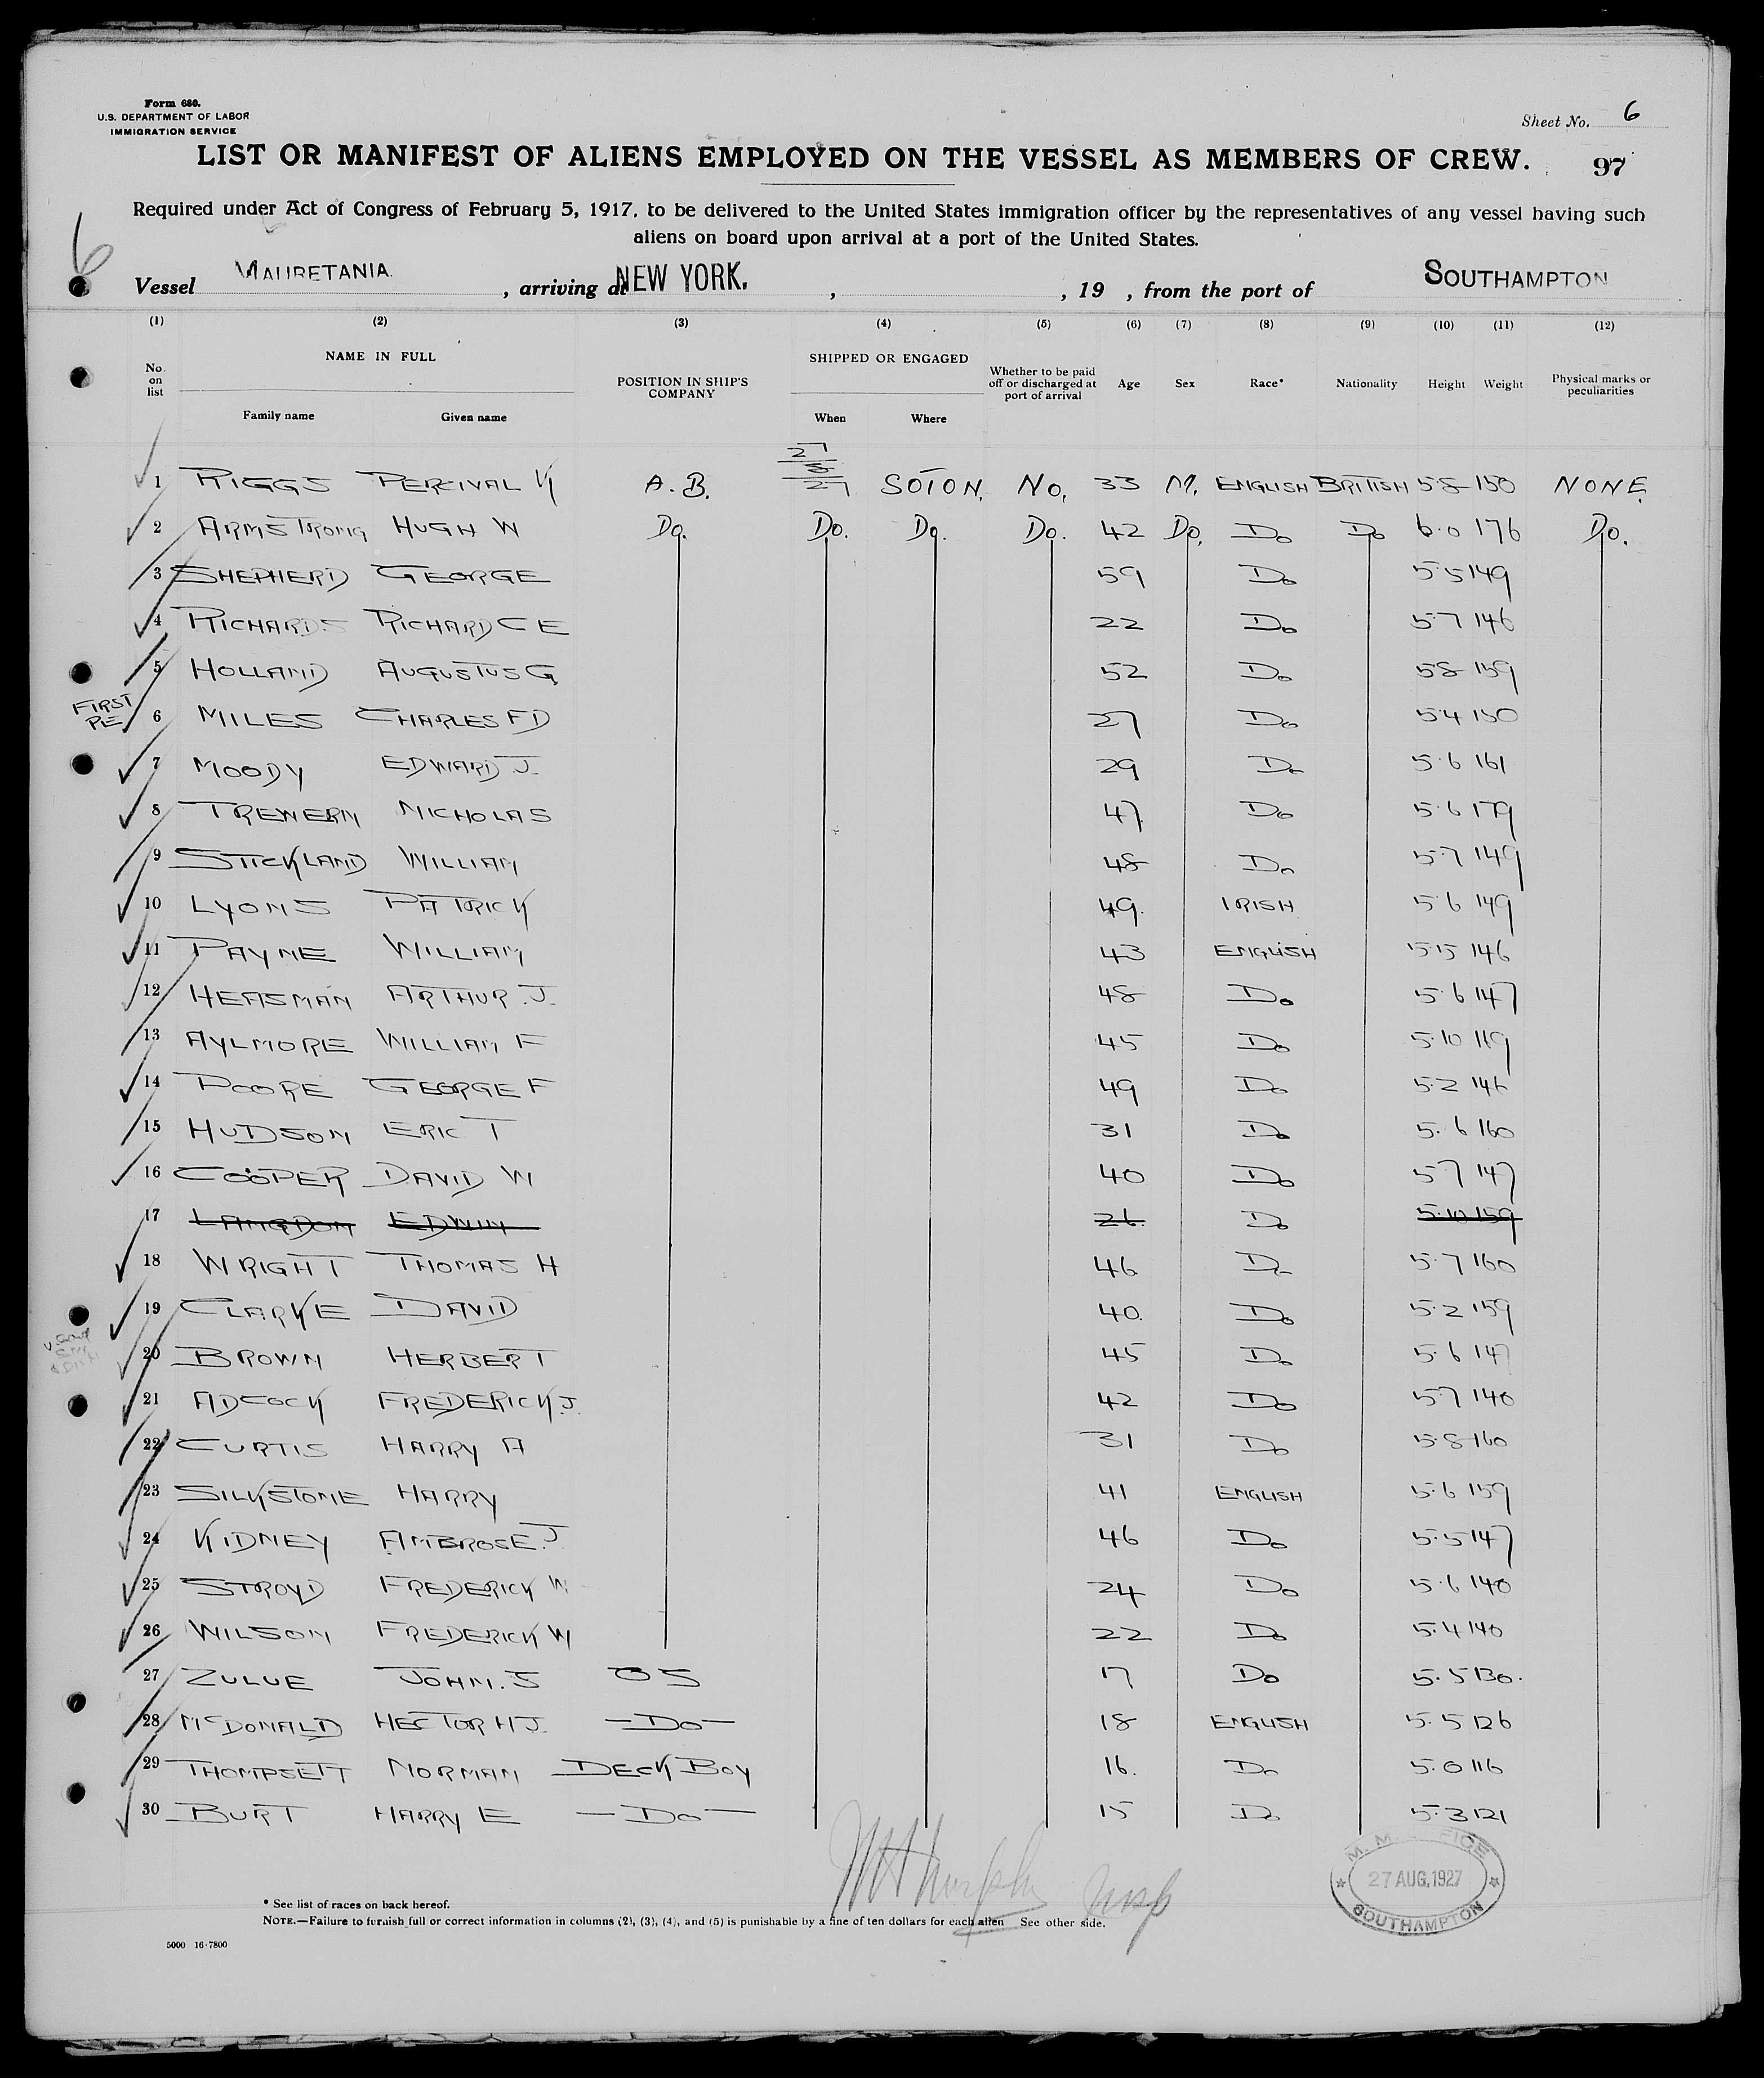 Form 680.
U.S. DEPARTMENT OF LABOR
IMMIGRATION SERVICE
Sheet No. 6
LIST OR MANIFEST OF ALIENS EMPLOYED ON THE VESSEL AS MEMBERS OF CREW. 97
Required under Act of Congress of February 5, 1917, to be delivered to the United States immigration officer by the representatives of any vessel having such
aliens on board upon arrival at a port of the United States.
6
Vessel MAURETANIA, arriving at NEW YORK. , , 19 , from the port of SOUTHAMPTON
(1) (2) (3) (4) (5) (6) (7) (8) (9) (10) (11) (12)
No. on list NAME IN FULL Family name Given name POSITION IN SHIP'S COMPANY SHIPPED OR ENGAGED When Where Whether to be paid off or discharged at port of arrival Age Sex Race* Nationality Height Weight Physical marks or peculiarities
1 RIGGS PERCIVAL K A.B. 27/8/27 SOTON. No. 33 M. ENGLISH BRITISH 5.8 150 NONE.
2 ARMSTRONG HUGH W Do. Do. Do. Do. 42 Do. Do Do 6.0 176 Do.
3 SHEPHERD GEORGE 59 Do 5.5 149
4 RICHARDS RICHARD C E 22 Do 5.7 146
5 HOLLAND AUGUSTUS G 52 Do 5.8 159
FIRST
6 MILES CHARLES F D 27 Do 5.4 150
7 MOODY EDWARD J. 29 Do 5.6 161
8 TREWERN NICHOLAS 47 Do 5.6 179
9 STICKLAND WILLIAM 48 Do 5.7 149
10 LYONS PATRICK 49. IRISH 5.6 149
11 PAYNE WILLIAM 43 ENGLISH 5.5 146
12 HEASMAN ARTHUR.J. 48 Do 5.6 147
13 AYLMORE WILLIAM F 45 Do 5.10 169
14 POORE GEORGE F 49 Do 5.2 146
15 HUDSON ERIC T 31 Do 5.6 160
16 COOPER DAVID W 40 Do 5.7 147
17 LANGDON EDWIN 26. Do 5.10 159
18 WRIGHT THOMAS H 46 Do 5.7 160
19 CLARKE DAVID 40. Do 5.2 159
20 BROWN HERBERT 45 Do 5.6 147
21 ADCOCK FREDERICK.J. 42 Do 5.7 140
22 CURTIS HARRY A 31 Do 5.8 160
23 SILKSTONE HARRY 41 ENGLISH 5.6 159
24 KIDNEY AMBROSE.J 46 Do 5.5 147
25 STROYD FREDERICK W 24 Do 5.6 140
26 WILSON FREDERICK W 22 Do 5.4 140
27 ZULUE JOHN.S OS 17 Do 5.5 130.
28 McDONALD HECTOR H J. —Do— 18 ENGLISH 5.5 126
29 THOMPSETT NORMAN DECK BOY 16. Do 5.0 116
30 BURT HARRY E —Do— 15 Do 5.3 121
27 AUG. 1927
SOUTHAMPTON
* See list of races on back hereof.
NOTE.—Failure to furnish full or correct information in columns (2), (3), (4), and (5) is punishable by a fine of ten dollars for each alien See other side.
5000 16-7800